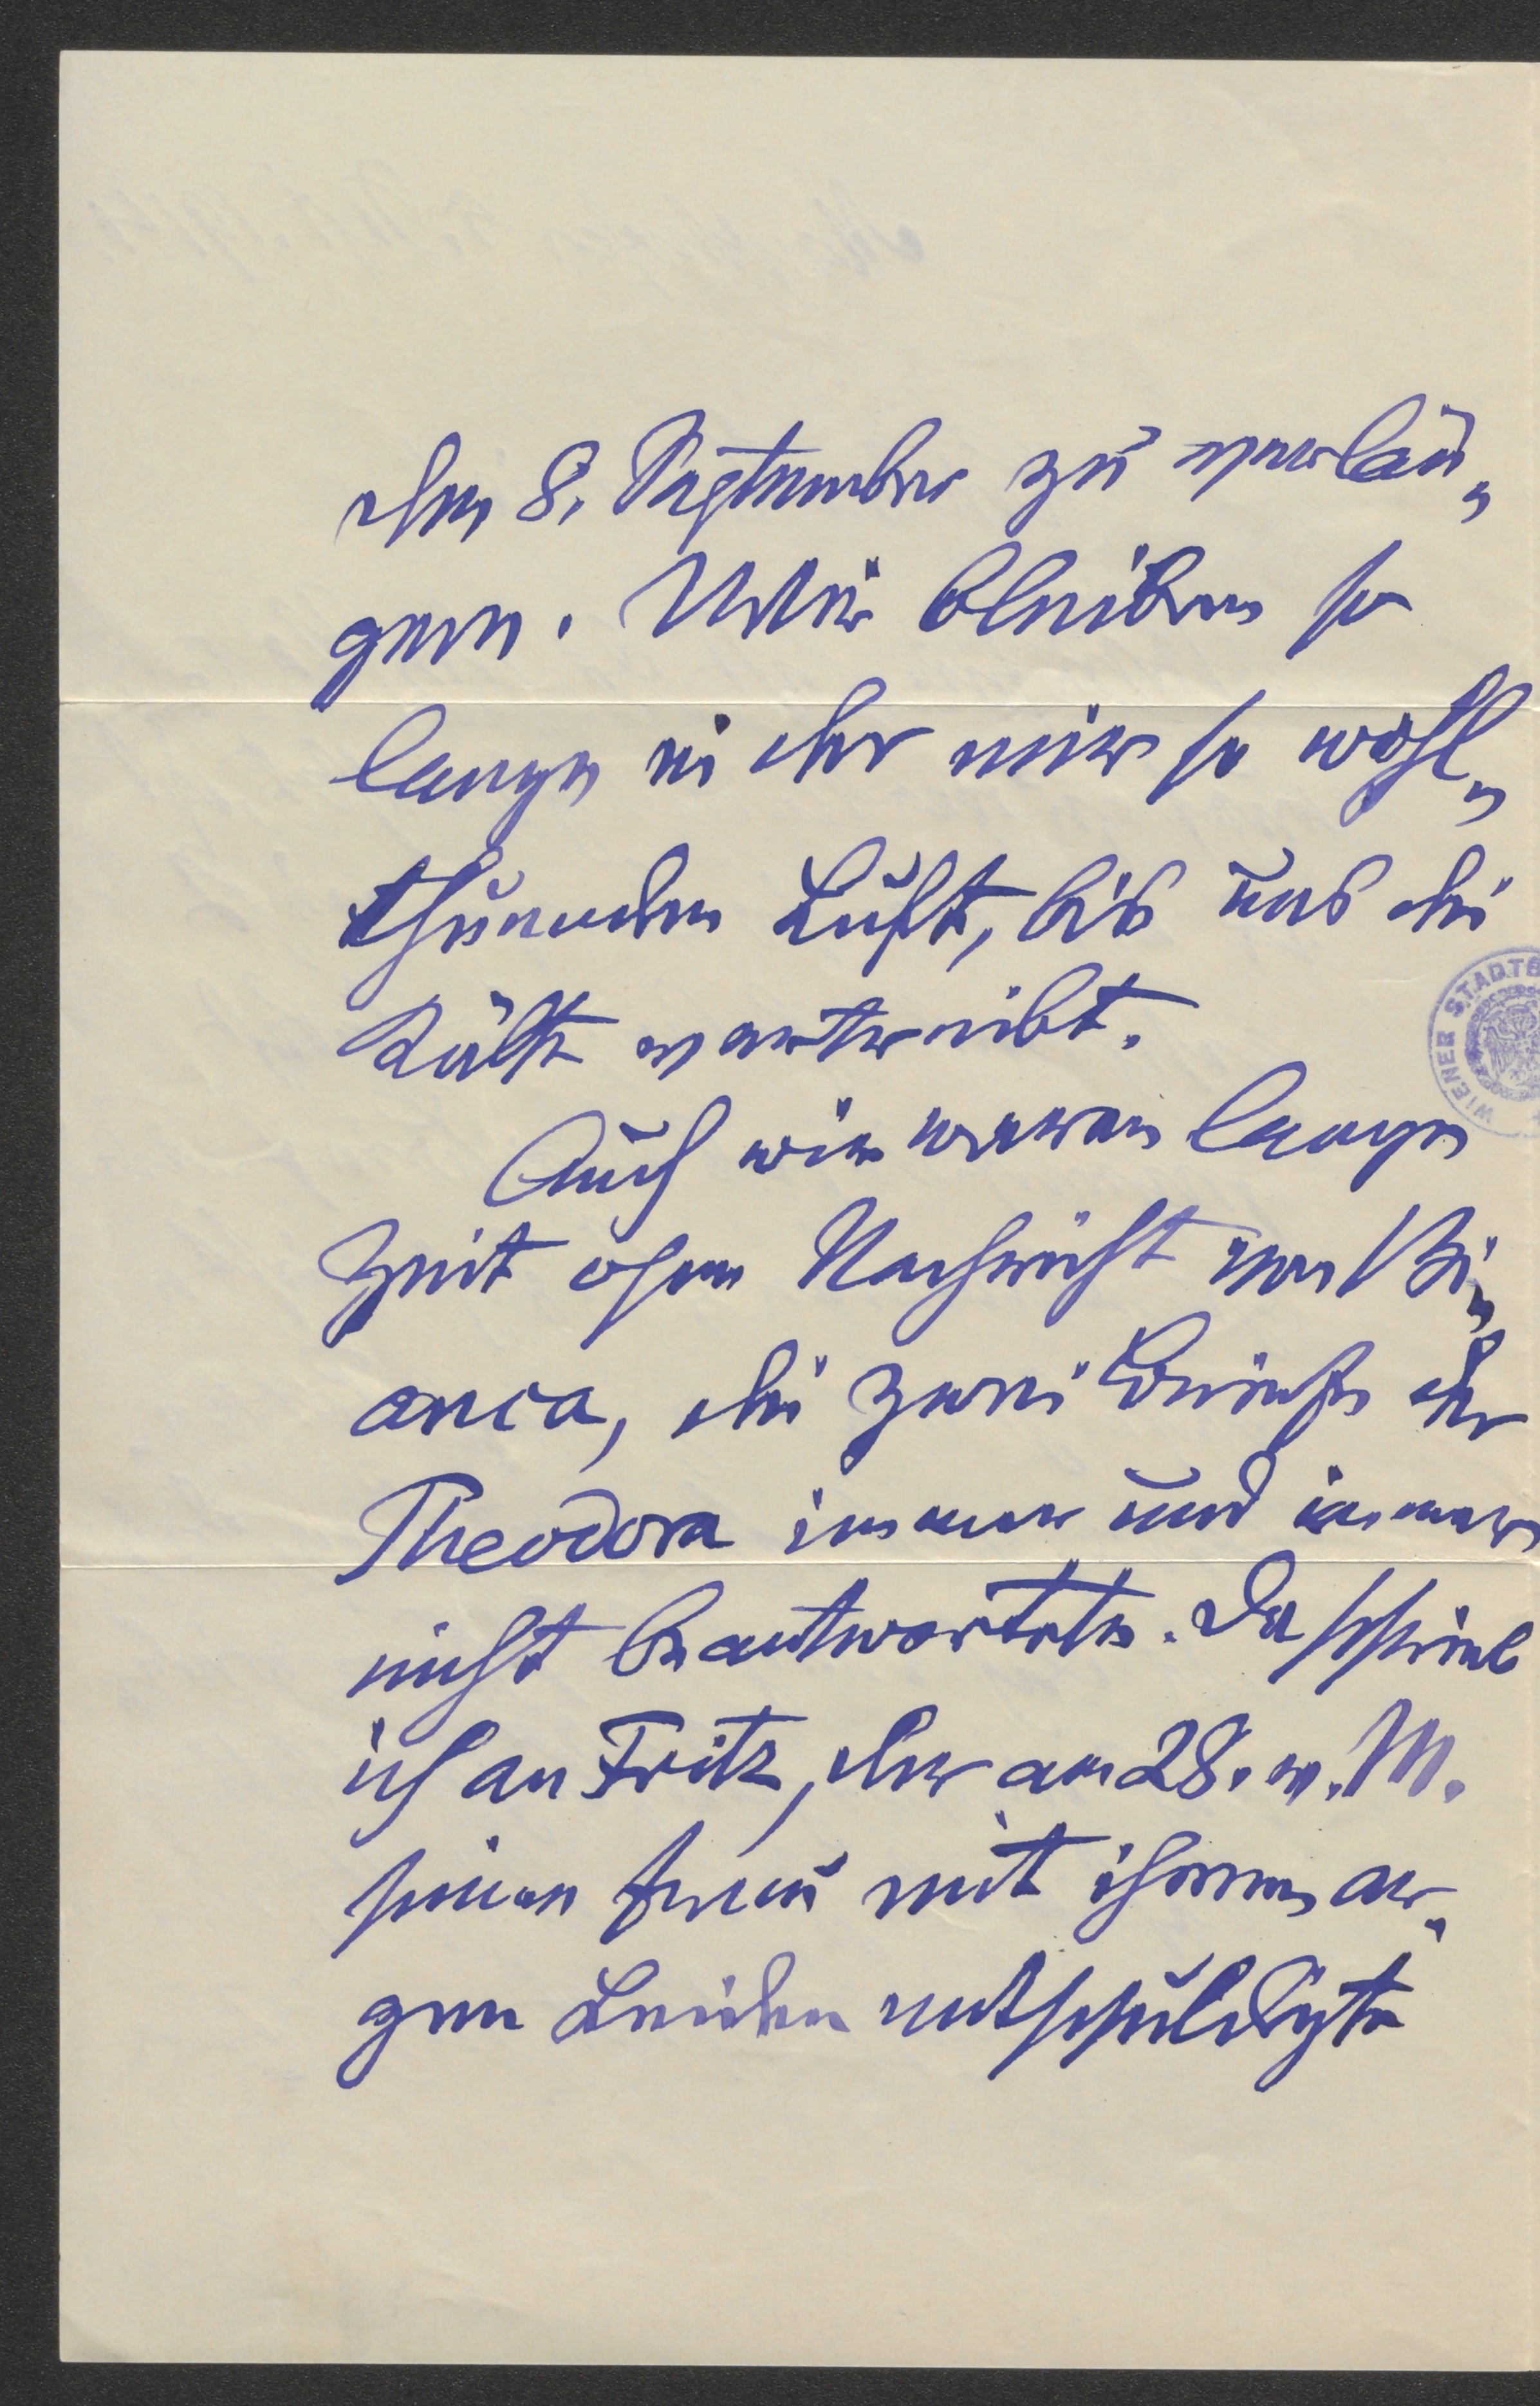 dem 8. September zu verlän-
gern. Wir bleiben so
lange in der mir so wohl-
thuenden Luft, bis uns die
Kälte vertreibt.
Auch wir waren lange
Zeit ohne Nachricht von Bi-
anca, die zwei Briefe der
Theodora immer und immer
nicht beantwortete. Da schrieb
ich an Fritz, der am 28. v. M.
seine Frau mit ihrem ar-
gen Leiden entschuldigte
WIENER STADTB